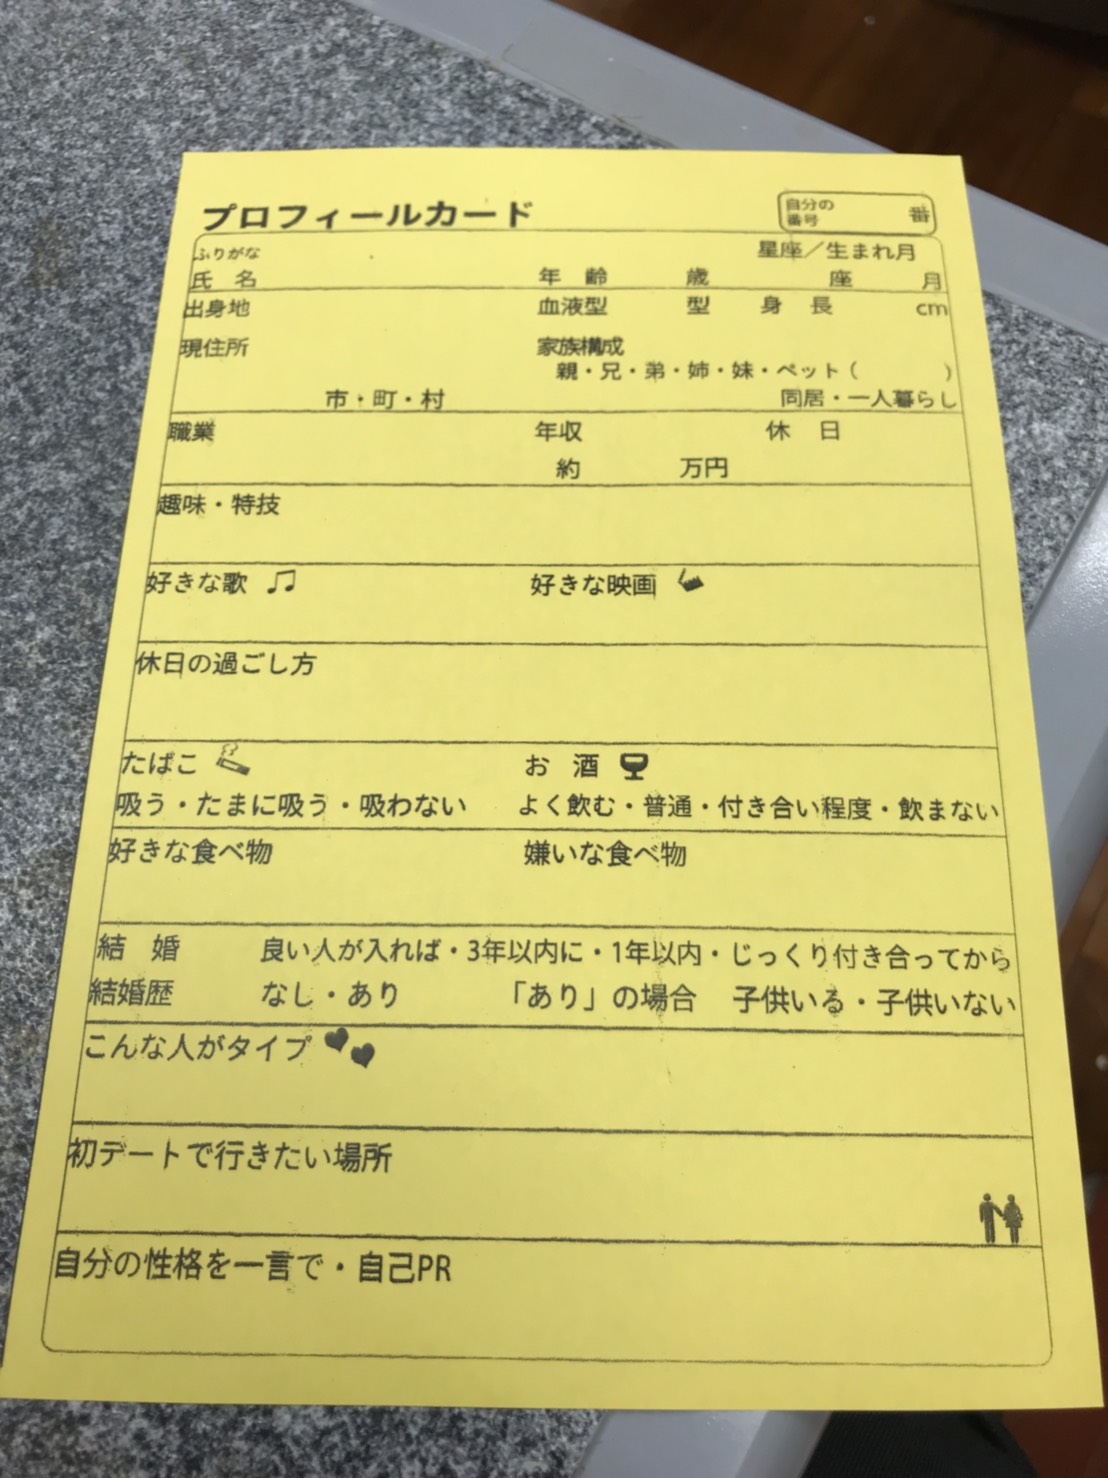 プロフィールカード
自分の番号 番
ふりがな 星座／生まれ月
氏 名 年 齢 歳 座 月
出身地 血液型 型 身 長 cm
現住所 家族構成
親・兄・弟・姉・妹・ペット（ ）
市・町・村 同居・一人暮らし
職業 年収 休 日
約 万円
趣味・特技
好きな歌 ♫ 好きな映画
休日の過ごし方
たばこ お 酒
吸う・たまに吸う・吸わない よく飲む・普通・付き合い程度・飲まない
好きな食べ物 嫌いな食べ物
結 婚 良い人が入れば・3年以内に・1年以内・じっくり付き合ってから
結婚歴 なし・あり 「あり」の場合 子供いる・子供いない
こんな人がタイプ
初デートで行きたい場所
自分の性格を一言で・自己PR